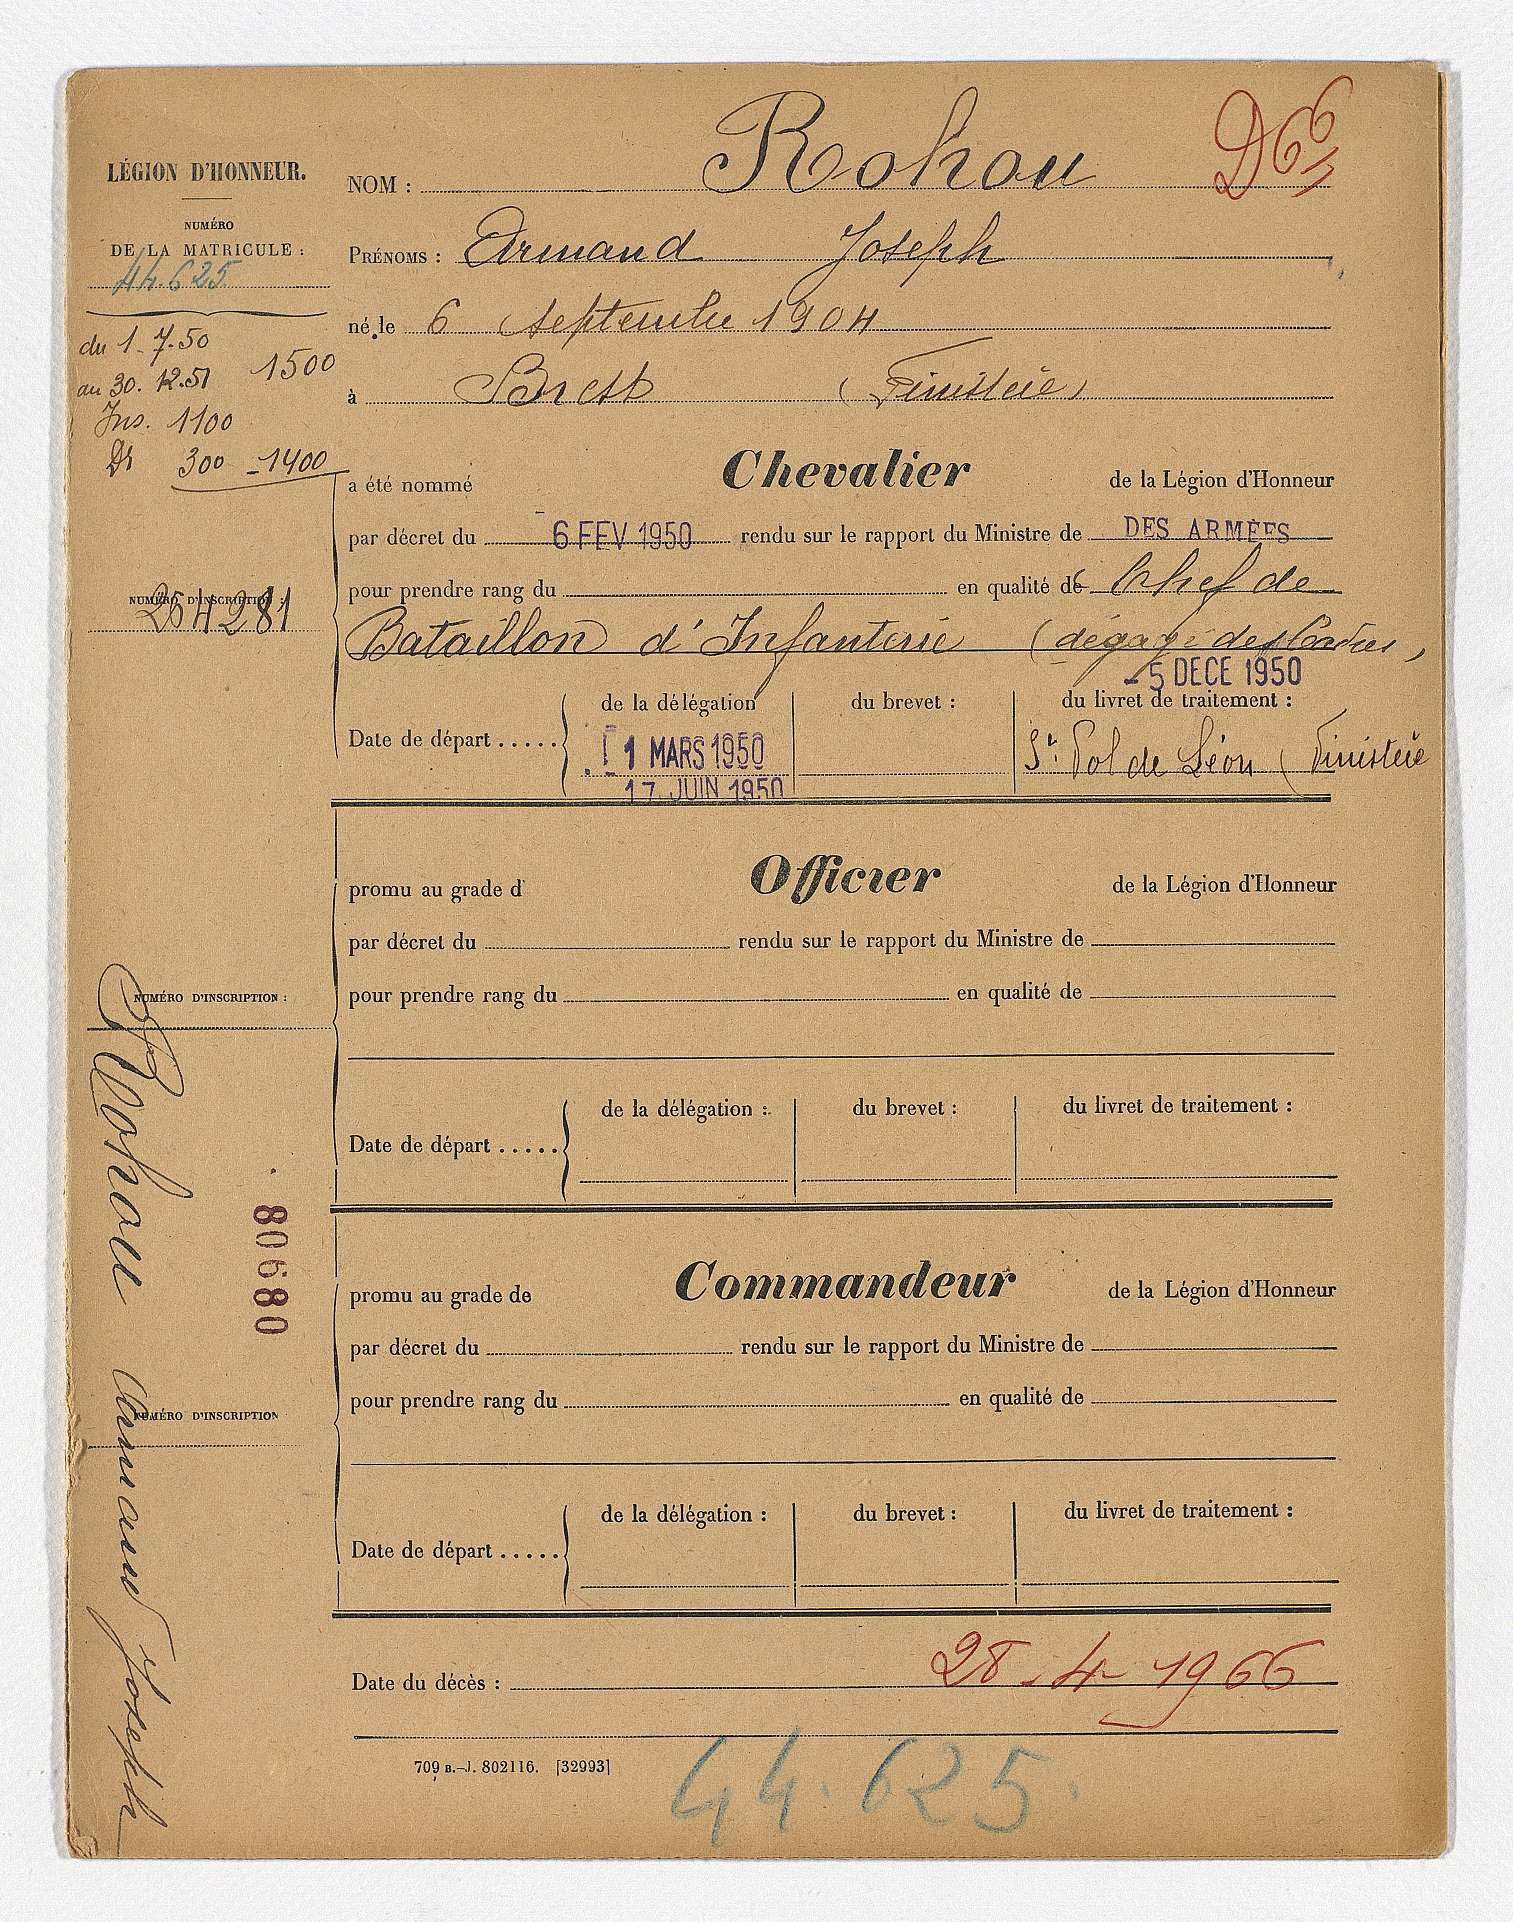 LÉGION D'HONNEUR.
NUMÉRO
DE LA MATRICULE :
44.625
du 1-7-50
au 30.12.51 1500
Ins. 1100
Dr 300 - 1400
NOM : Rohou
D66
PRÉNOMS : Armand Joseph
né le 6 septembre 1904
à Brest (Finistère)
a été nommé Chevalier de la Légion d'Honneur
par décret du 6 FEV 1950 rendu sur le rapport du Ministre de DES ARMEES
pour prendre rang du en qualité de Chef de
NUMÉRO D'INSCRIPTION :
254281
Bataillon d'Infanterie (dégagé des Cadres)
- 5 DECE 1950
Date de départ ..... de la délégation du brevet : du livret de traitement :
1 MARS 1950
17 JUIN 1950
St Pol de Léon (Finistère
promu au grade d' Officier de la Légion d'Honneur
par décret du rendu sur le rapport du Ministre de
pour prendre rang du en qualité de
NUMÉRO D'INSCRIPTION :
Date de départ ..... de la délégation : du brevet : du livret de traitement :
80680
promu au grade de Commandeur de la Légion d'Honneur
par décret du rendu sur le rapport du Ministre de
pour prendre rang du en qualité de
NUMÉRO D'INSCRIPTION
Date de départ ..... de la délégation : du brevet : du livret de traitement :
Rohou Armand Joseph
Date du décès : 28-4-1966
709 B.-J. 802116. [32993]
44.625.